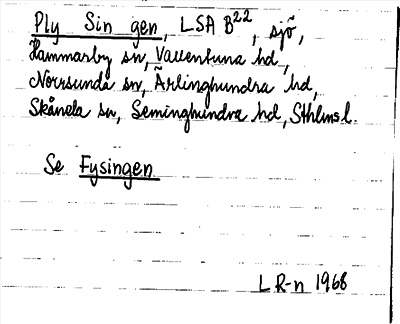 Ply Sin gen, LSA B²², sjö,
Hammarby sn, Vallentuna hd,
Norrsunda sn, Ärlinghundra hd,
Skånela sn, Seminghundra hd, Sthlms l.
Se Fysingen
L R-n 1968